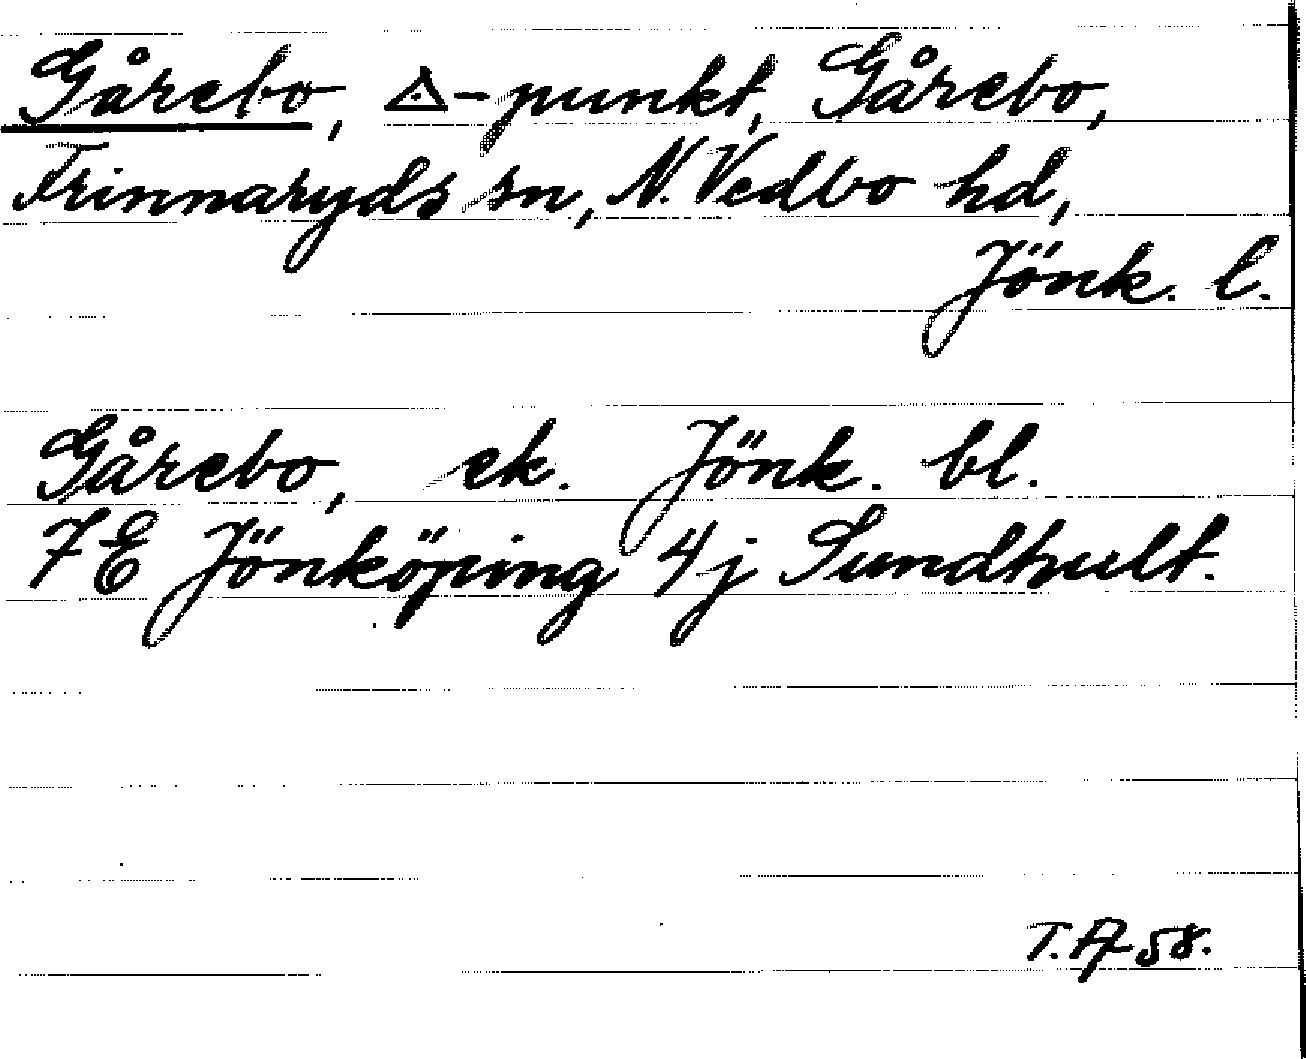 Gårebo, △-punkt, Gårebo,
Frinnaryds sn, N. Vedbo hd,
Jönk. l.
Gårebo, ek. Jönk. bl.
7E Jönköping 4j Sundhult.
T. A-58.